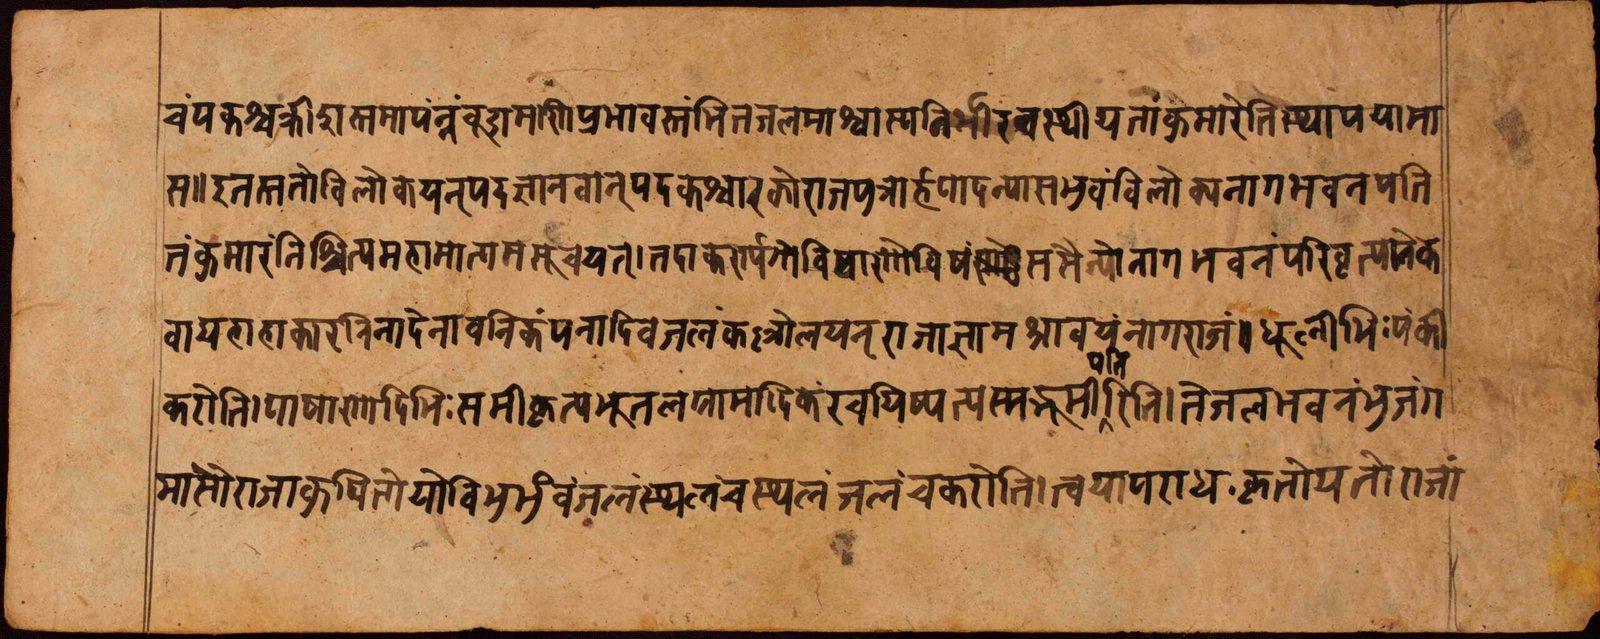 चंपकश्चक्रीडात्तमापंन्नंचूडामणिप्रभावस्तंभितजलमाश्वास्यनिर्भीरत्रस्थीयतांकुमारेतिस्थापयामा
स॥दूनस्ततोविलोकयन्पदज्ञानवान्पदकश्चारकोराजपुत्रार्हणोदन्यासभुवंविलोक्यनागभवनपति
तंकुमारंनिश्चित्यमहामात्यमसूचयत्।तदाकर्ण्य विषं ससैन्योनागभवनंपरिवृत्यानेक
वाद्यहाहाकारनिनादेनावनिकंपनादिवजलंकल्लोलयन्राजाज्ञामश्रावयंनागराजं॥धूलीभिःपंकी
करोति।पाषाणादिभिःसमीकृत्यभूतलग्रामादिकंरचयिष्यत्यस्मद्भूमीपतिरिति।तेजलभवनंभुजंग
मासौराजाकुपितोयोविभुर्भुवंजलंस्थलंचस्थलंजलंचकरोति।त्वयापराधःकृतोयतोराजां